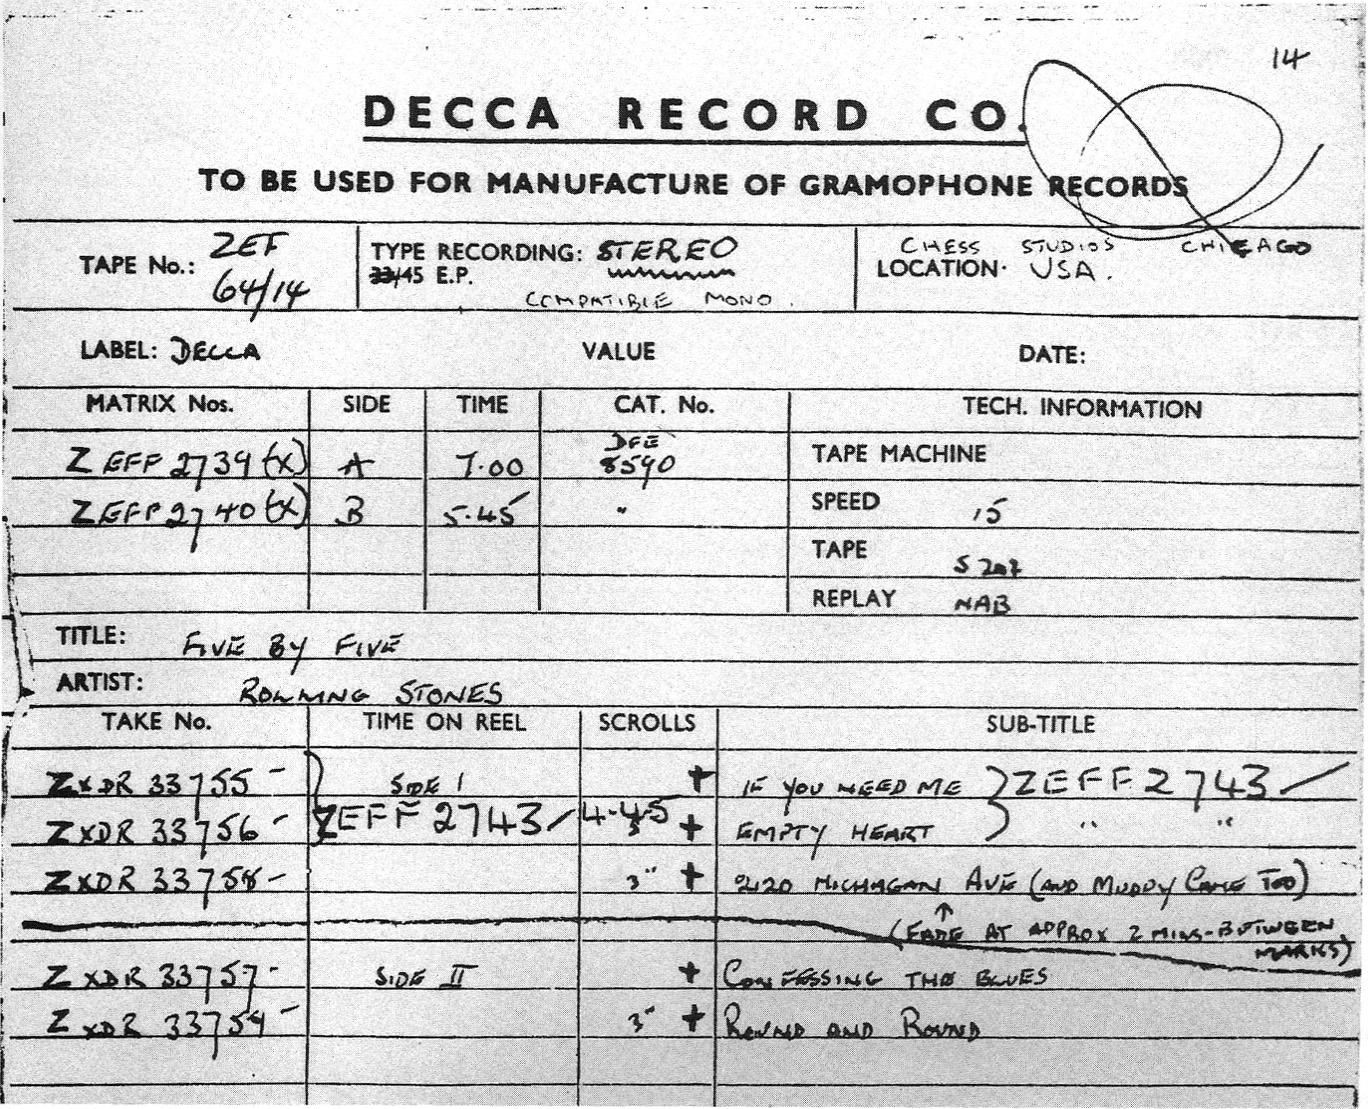 14
DECCA RECORD CO.
TO BE USED FOR MANUFACTURE OF GRAMOPHONE RECORDS
TAPE No.: ZEF 64/14
TYPE RECORDING: STEREO
33/45 E.P.
COMPATIBLE MONO.
CHESS STUDIOS CHICAGO
LOCATION· USA.
LABEL: DECCA VALUE DATE:
MATRIX Nos. SIDE TIME CAT. No. TECH. INFORMATION
ZEFF 2739 (X) A 7.00 DFE 8590 TAPE MACHINE
ZEFF 2740 (X) B 5.45 " SPEED 15
TAPE S207
REPLAY NAB
TITLE: FIVE BY FIVE
ARTIST: ROLLING STONES
TAKE No. TIME ON REEL SCROLLS SUB-TITLE
ZXDR 33755 - SIDE 1 + IF YOU NEED ME ZEFF 2743
ZXDR 33756 - ZEFF 2743 4.45 3" + EMPTY HEART " "
ZXDR 33758 - 3" + 2120 MICHAGAN AVE (AND MUDDY CAME TOO)
(FADE AT APPROX 2 MINS-BETWEEN MARKS)
ZXDR 33757 - SIDE II + CONFESSING THE BLUES
ZXDR 33759 - 3" + ROUND AND ROUND